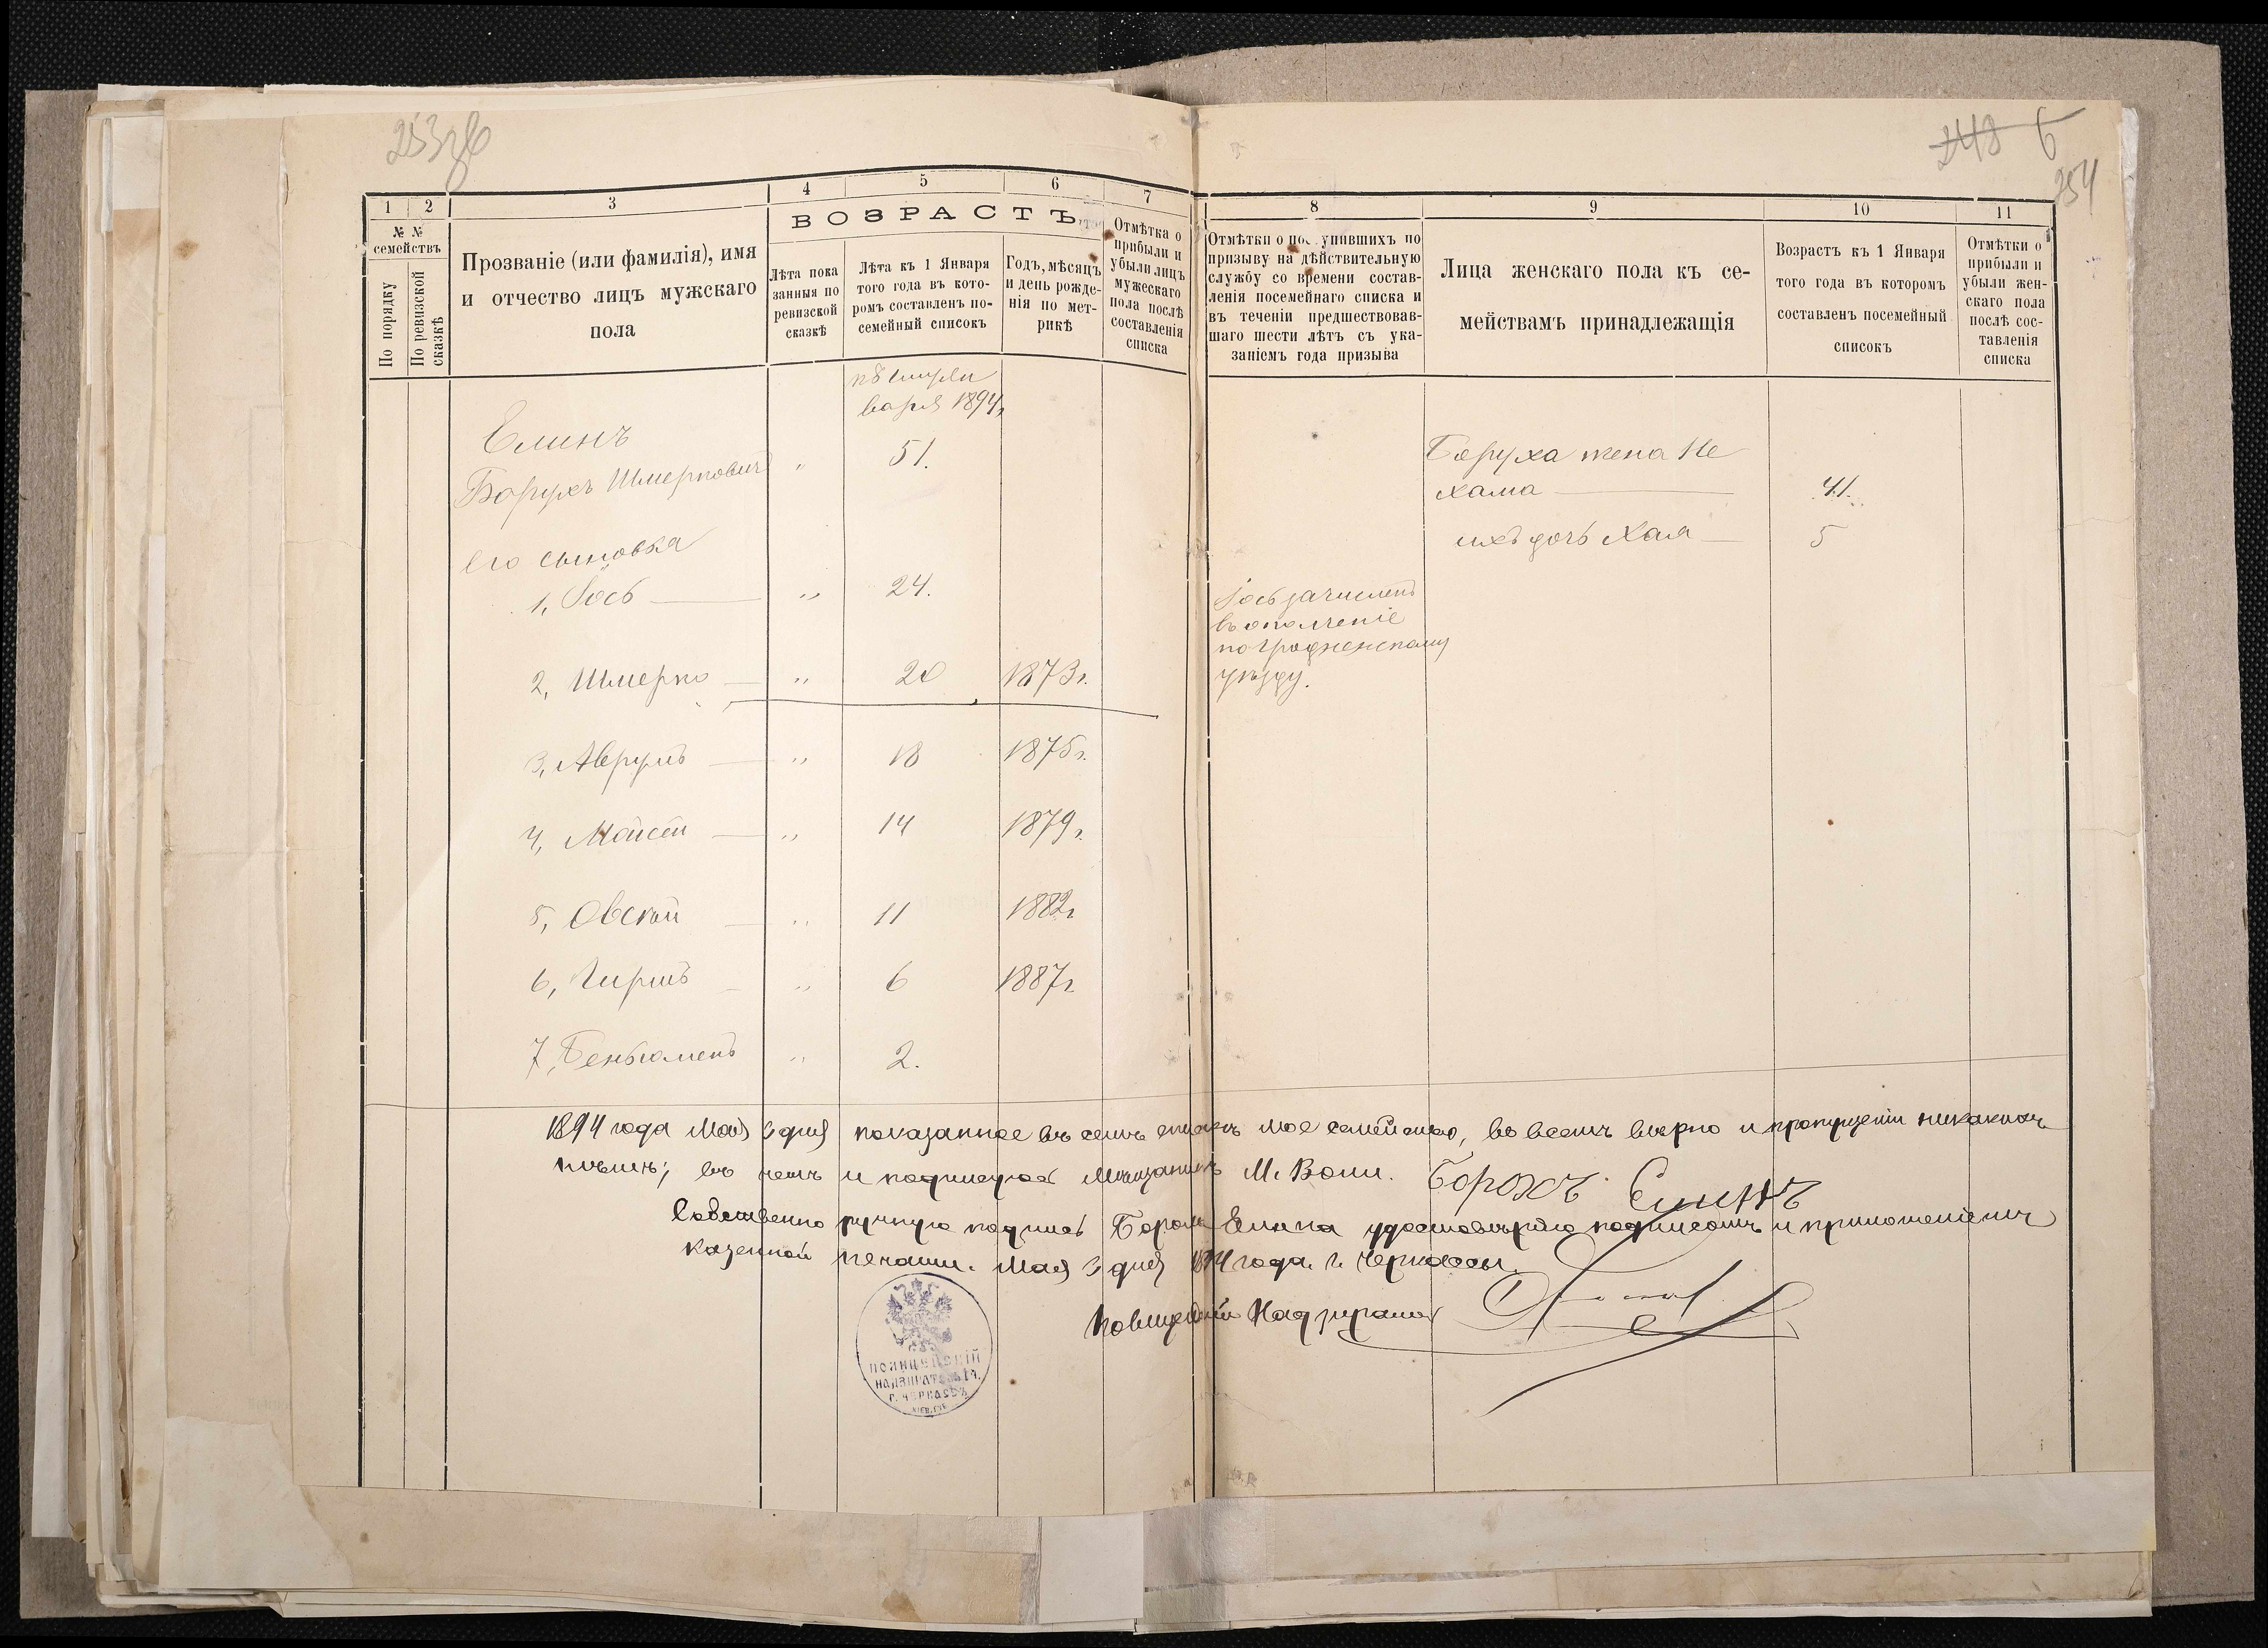 253 об
248 6
254
1 2 3 4 5 6 7 8 9 10 11
№ №
семействъ
По порядку
По ревизской
сказкѣ
Прозваніе (или фамилія), имя
и отчество лицъ мужскаго
пола
ВОЗРАСТЪ
Лѣта пока
занныя по
ревизской
сказкѣ
Лѣта къ 1 Января
того года въ кото-
ромъ составленъ по-
семейный списокъ
Годъ, мѣсяцъ
и день рожде-
нія по мет-
рикѣ
Отмѣтка о
прибыли и
убыли лицъ
мужескаго
пола послѣ
составленія
списка
Отмѣтки о поступившихъ по
призыву на дѣйствительную
службу со времени состав-
ленія посемейнаго списка и
въ теченіи предшествовав-
шаго шести лѣтъ съ ука-
заніемъ года призыва
Лица женскаго пола къ се-
мействамъ принадлежащія
Возрастъ къ 1 Января
того года въ котором
составленъ посемейный
списокъ
Отмѣтки о
прибыли и
убыли жен-
скаго пола
послѣ сос-
тавленія
списка
варя 1894г.
Елинъ
Борухъ Шмерковичъ " 51.
Боруха жена Не
хама 41.
ихъ дочь Хая 5
его сыновья
1, Іось " 24.
Іось зачисленъ
въ ополченіе
по Гродненскому
уѣзду.
2, Шмерко " 20 1873г.
3, Аврумъ " 18 1875г.
4, Мойсей " 14 1879г.
5, Овсей " 11 1882г
6, Гиршъ " 6 1887г
7, Беньюменъ " 2.
1894 года Мая 3 дня показанное въ семъ спискѣ мое семейство, во всемъ вѣрно и пропущеній никакихъ
нѣтъ; въ чемъ и подписуюсь Мѣщанинъ М. Волп. Борохъ Елинъ
Собственно ручную подпись Бороха Елина удостовѣряю подписомъ и приложеніемъ
казенной печати. Мая 3 дня 1894 года. г. Черкассы.
Полицейскій Надзиратель
ПОЛИЦЕЙСКІЙ
НАДЗИРАТЕЛЬ 1 Ч.
Г. ЧЕРКАСЪ
КІЕВ. ГУБ